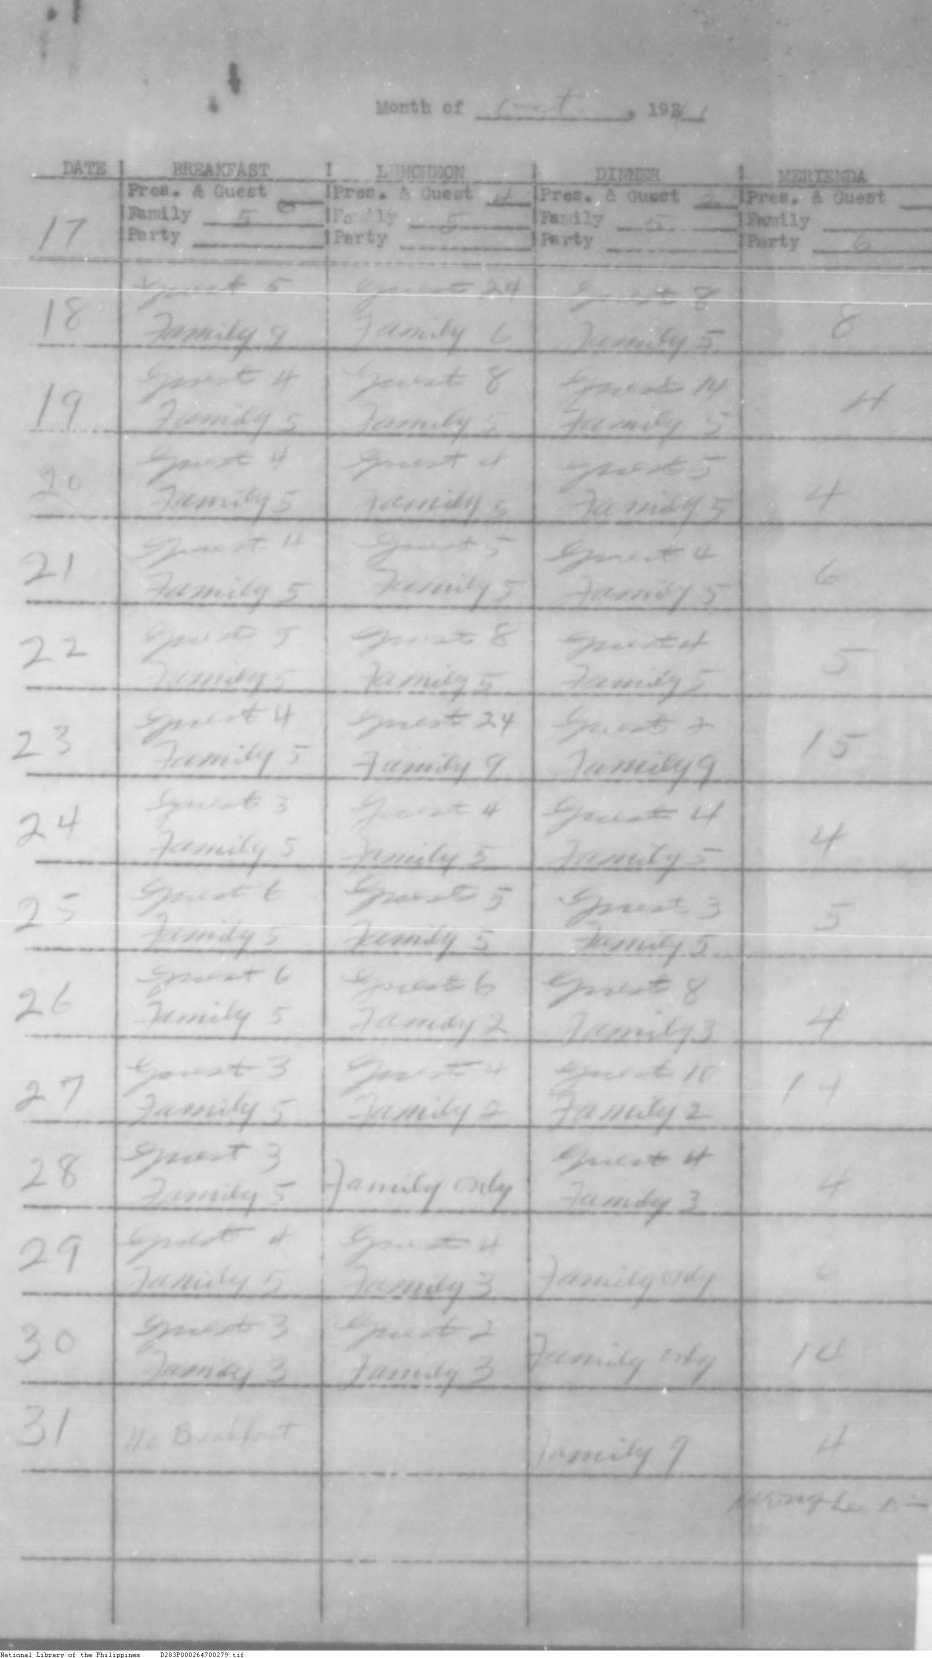 Month of , 19
DATE BREAKFAST LUNCHEON DINNER MERIENDA
Pres. & Guest Pres. & Guest 4 Pres. & Guest 2 Pres. & Guest
17 Family 5 Family 5 Family 5 Family
Party Party Party Party 6
Guest 5 Guest 24 Guest 8
18 Family 9 Family 6 Family 5 8
Guest 4 Guest 8 Guest 14
19 Family 5 Family 5 Family 5 4
Guest 4 Guest 4 Guest 5
20 Family 5 Family 5 Family 5 4
Guest 4 Guest 5 Guest 4
21 Family 5 Family 5 Family 5 6
Guest 5 Guest 8 Guest 4
22 Family 5 Family 5 Family 5 5
Guest 4 Guest 24 Guest 2
23 Family 5 Family 9 Family 9 15
Guest 3 Guest 4 Guest 4
24 Family 5 Family 5 Family 5 4
Guest 6 Guest 5 Guest 3
25 Family 5 Family 5 Family 5 5
Guest 6 Guest 6 Guest 8
26 Family 5 Family 2 Family 3 4
Guest 3 Guest 4 Guest 10
27 Family 5 Family 2 Family 2 14
Guest 3 Guest 4
28 Family 5 Family only Family 3 4
Guest 4 Guest 4
29 Family 5 Family 3 Family only 6
Guest 3 Guest 2
30 Family 3 Family 3 Family only 14
31 No Breakfast Family 9 4
National Library of the Philippines D283P000264700279.tif